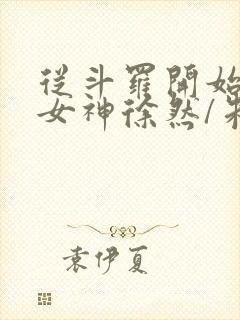 從斗羅開始
女神徐然/
袁伊夏